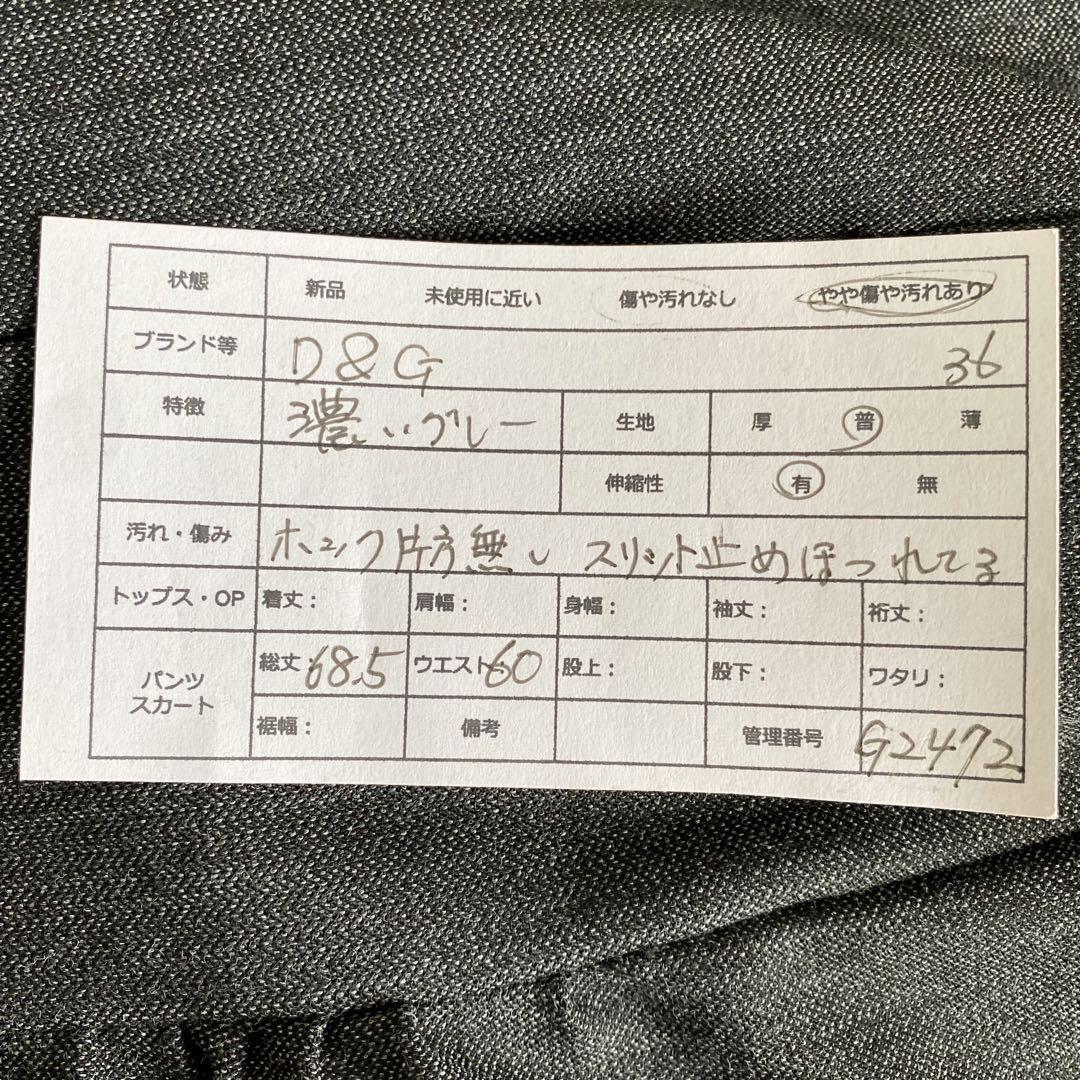 状態 新品 未使用に近い 傷や汚れなし やや傷や汚れあり
ブランド等 D&G 36
特徴 濃いグレー 生地 厚 普 薄
伸縮性 有 無
汚れ・傷み ホック片方無し スリット止めほつれてる
トップス・OP 着丈: 肩幅: 身幅: 袖丈: 裄丈:
パンツ スカート 総丈:68.5 ウエスト:60 股上: 股下: ワタリ:
裾幅: 備考 管理番号 G2472